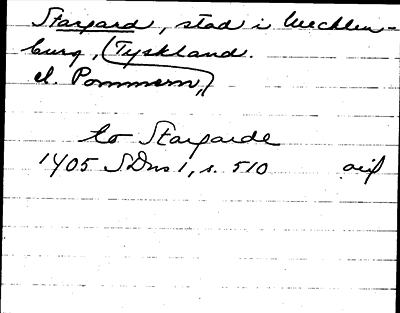 Stargard, stad i Mecklen-
burg, (Tyskland.
el. Pommern,)
to Stargarde
1405 SDns 1, s. 510 orig